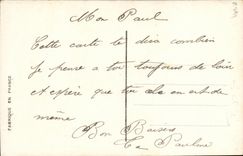 Mon Paul
Cette carte te dira combien
je pense a toi toujours de loin
et espère que tu en de
même
Bon Baisers
Ta Pauline
FABRIQUÉ EN FRANCE